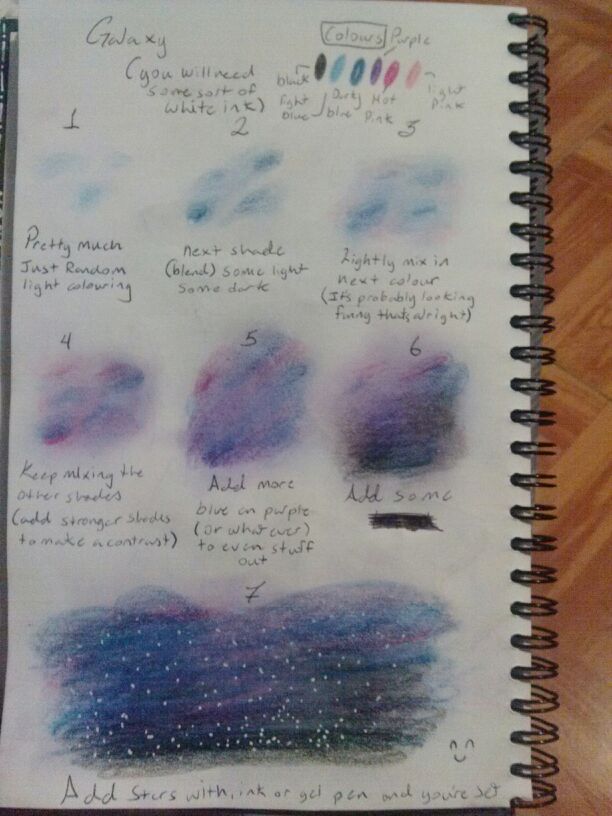 Galaxy
(you will need
some sort of
white ink)
Colours
Purple
black
light
blue
Dark
blue
Hot
Pink
light
Pink
1
Pretty much
Just Random
light colouring
2
next shade
(blend) some light
some dark
3
Lightly mix in
next colour
(It's probably looking
funny thats alright)
4
Keep mixing the
other shades
(add stronger shades
to make a contrast)
5
Add more
blue on purple
(or whatever)
to even stuff
out
6
Add some
7
Add Stars with, ink or gel pen and you're set